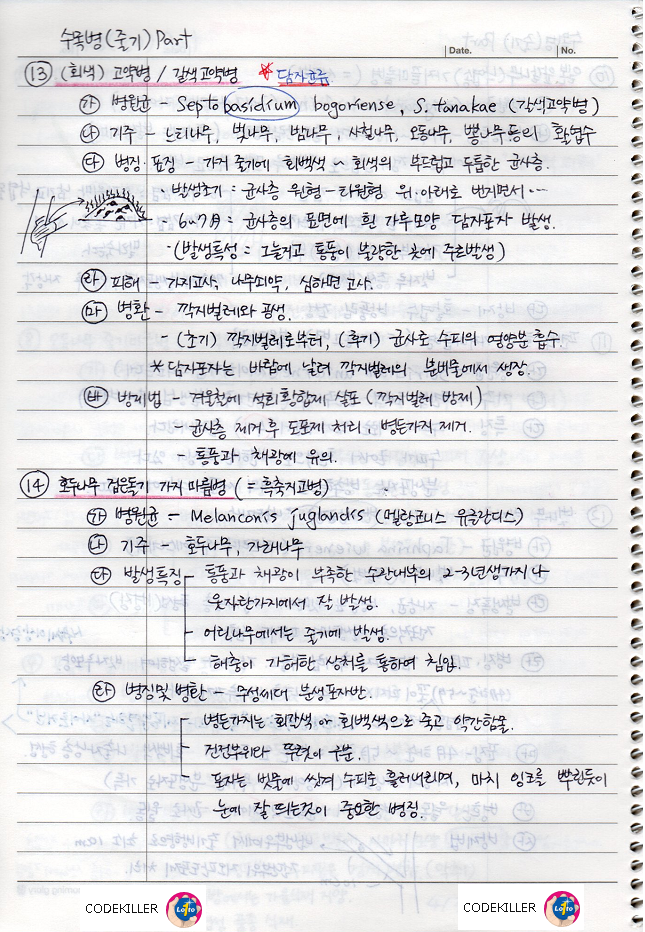 수목병(줄기) Part
Date. No.
⑬ (회색) 고약병 / 갈색고약병 * 담자균류
㉮ 병원균 - Septobasidium bogoriense, S. tanakae (갈색고약병)
㉯ 기주 - 느티나무, 벚나무, 밤나무, 사철나무, 오동나무, 뽕나무등의 활엽수
㉰ 병징·표징 - 가지 줄기에 회백색 ~ 회색의 부드럽고 두툼한 균사층.
· 발생초기 : 균사층 원형-타원형 위·아래로 번지면서 …
· 6~7月 : 균사층의 표면에 흰 가루모양 담자포자 발생.
· (발생특성 = 그늘지고 통풍이 불량한 곳에 주로발생)
㉱ 피해 - 가지고사, 나무쇠약, 심하면 고사.
㉲ 병환 - 깍지벌레와 공생.
- (초기) 깍지벌레로부터, (후기) 균사로 수피의 영양분 흡수.
* 담자포자는 바람에 날려 깍지벌레의 분비물에서 생장.
㉳ 방제법 - 겨울철에 석회황합제 살포 (깍지벌레 방제)
- 균사층 제거 후 도포제 처리, 병든가지 제거.
- 통풍과 채광에 유의.
⑭ 호두나무 검은돌기 가지 마름병 (= 흑축지고병)
㉮ 병원균 - Melanconis juglandis (멜랑코니스 유글란디스)
㉯ 기주 - 호두나무, 가래나무
㉰ 발생특징 - 통풍과 채광이 부족한 수관내부의 2-3년생가지나
웃자란가지에서 잘 발생.
- 어린나무에서는 줄기에 발생.
- 해충이 가해한 상처를 통하여 침입.
㉱ 병징및병환 - 무성세대 분생포자반.
- 병든가지는 회갈색 or 회백색으로 죽고 약간함몰.
- 건전부위와 뚜렷이 구분.
- 포자는 빗물에 씻겨 수피로 흘러내리며, 마치 잉크를 뿌린듯이
눈에 잘 띄는것이 중요한 병징.
CODEKILLER Lotto CODEKILLER Lotto